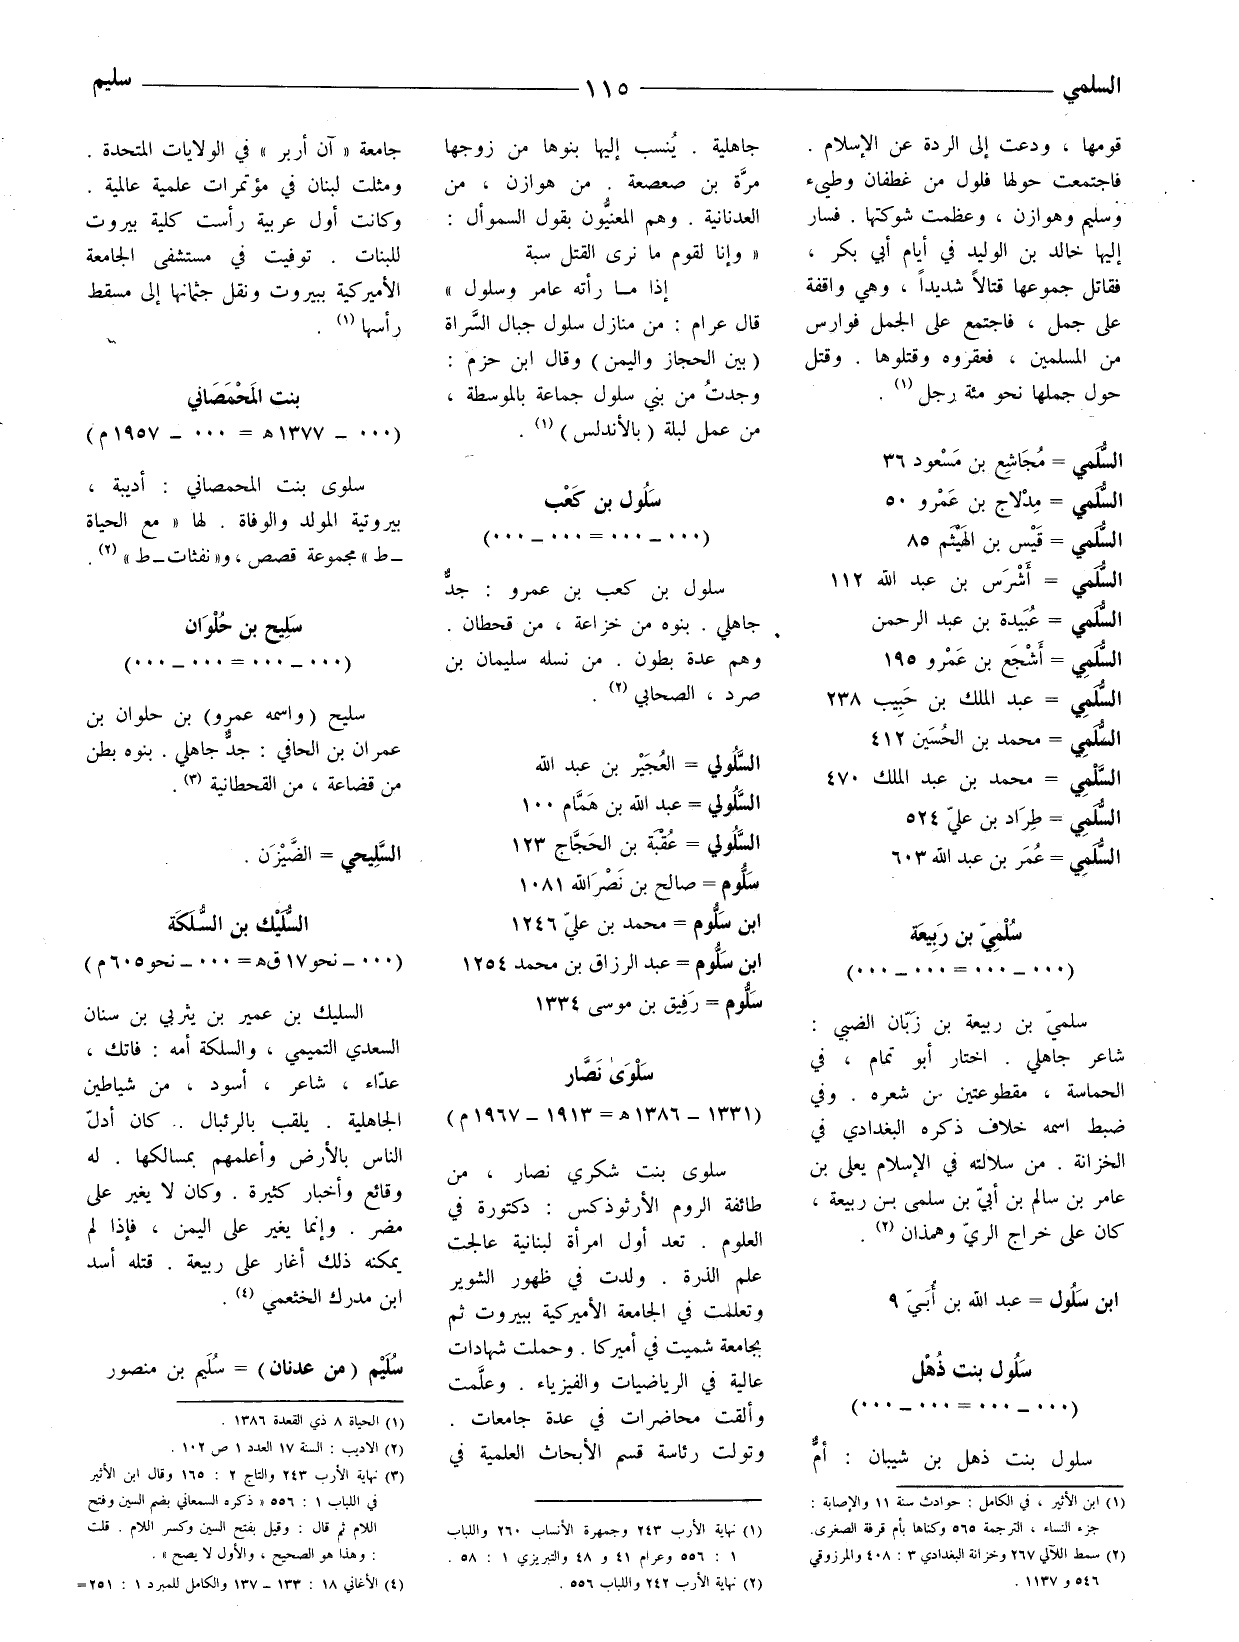 السلمي ١١٥ سليم
قومها ، ودعت إلى الردة عن الإسلام .
فاجتمعت حولها فلول من غطفان وطيء
وسليم وهوازن ، وعظمت شوكتها . فسار
إليها خالد بن الوليد في أيام أبي بكر ،
فقاتل جموعها قتالاً شديداً ، وهي واقفة
على جمل ، فاجتمع على الجمل فوارس
من المسلمين ، فعقروه وقتلوها . وقتل
حول جملها نحو مئة رجل (١) .
السُّلَمي = مُجَاشِع بن مَسْعود ٣٦
السُّلَمي = مِدْلاج بن عَمْرو ٥٠
السُّلَمي = قَيْس بن الهَيْثَم ٨٥
السُّلَمي = أَشْرَس بن عبد الله ١١٢
السُّلَمي = عُبَيدة بن عبد الرحمن
السُّلَمي = أَشْجَع بن عَمْرو ١٩٥
السُّلَمي = عبد الملك بن حَبِيب ٢٣٨
السُّلَمي = محمد بن الحُسَين ٤١٢
السَّلْمِي = محمد بن عبد الملك ٤٧٠
السُّلَمي = طِرَاد بن عليّ ٥٢٤
السُّلَمي = عُمَر بن عبد الله ٦٠٣
سُلْمِيّ بن رَبِيعَة
(٠٠٠ _ ٠٠٠ = ٠٠٠ _ ٠٠٠)
سلميّ بن ربيعة بن زَبّان الضبي :
شاعر جاهلي . اختار أبو تمام ، في
الحماسة ، مقطوعتين من شعره . وفي
ضبط اسمه خلاف ذكره البغدادي في
الخزانة . من سلالته في الإسلام يعلى بن
عامر بن سالم بن أبيّ بن سلمى بن ربيعة ،
كان على خراج الريّ وهمذان (٢) .
ابن سَلُول = عبد الله بن أُبَيّ ٩
سَلُول بنت ذُهْل
(٠٠٠ _ ٠٠٠ = ٠٠٠ _ ٠٠٠)
سلول بنت ذهل بن شيبان : أمٌّ
(١) ابن الأثير ، في الكامل : حوادث سنة ١١ والإصابة :
جزء النساء ، الترجمة ٥٦٥ وكناها بأم قرفة الصغرى.
(٢) سمط اللآلي ٢٦٧ وخزانة البغدادي ٣ : ٤٠٨ والمرزوقي
٥٤٦ و ١١٣٧ .
جاهلية . يُنسب إليها بنوها من زوجها
مرَّة بن صعصعة . من هوازن ، من
العدنانية . وهم المعنيُّون بقول السموأل :
« وإنا لقوم ما نرى القتل سبة
إذا مـا رأته عامر وسلول »
قال عرام : من منازل سلول جبال السَّراة
(بين الحجاز واليمن) وقال ابن حزم :
وجدتُ من بني سلول جماعة بالموسطة ،
من عمل لبلة (بالأندلس) (١) .
سَلُول بن كَعْب
(٠٠٠ _ ٠٠٠ = ٠٠٠ _ ٠٠٠)
سلول بن كعب بن عمرو : جدٌّ
جاهلي . بنوه من خزاعة ، من قحطان .
وهم عدة بطون . من نسله سليمان بن
صرد ، الصحابي (٢) .
السَّلُولي = العُجَيْر بن عبد الله
السَّلُولي = عبد الله بن هَمَّام ١٠٠
السَّلُولي = عُقْبَة بن الحَجَّاج ١٢٣
سَلُّوم = صالح بن نَصْرَالله ١٠٨١
ابن سَلُّوم = محمد بن عليّ ١٢٤٦
ابن سَلُّوم = عبد الرزاق بن محمد ١٢٥٤
سَلُّوم = رَفِيق بن موسى ١٣٣٤
سَلْوَىٰ نَصَّار
(١٣٣١ _ ١٣٨٦ ه = ١٩١٣ _ ١٩٦٧ م)
سلوى بنت شكري نصار ، من
طائفة الروم الأرثوذكس : دكتورة في
العلوم . تعد أول امرأة لبنانية عالجت
علم الذرة . ولدت في ظهور الشوير
وتعلمت في الجامعة الأميركية ببيروت ثم
بجامعة شميت في أميركا . وحملت شهادات
عالية في الرياضيات والفيزياء . وعلَّمت
وألقت محاضرات في عدة جامعات .
وتولت رئاسة قسم الأبحاث العلمية في
(١) نهاية الأرب ٢٤٣ وجمهرة الأنساب ٢٦٠ واللباب
١ : ٥٥٦ وعرام ٤١ و ٤٨ والتبريزي ١ : ٥٨ .
(٢) نهاية الأرب ٢٤٢ واللباب ٥٥٦ .
جامعة « آن أربر » في الولايات المتحدة .
ومثلت لبنان في مؤتمرات علمية عالمية .
وكانت أول عربية رأست كلية بيروت
للبنات . توفيت في مستشفى الجامعة
الأميركية ببيروت ونقل جثمانها إلى مسقط
رأسها (١) .
بنت المَحْمَصَاني
(٠٠٠ _ ١٣٧٧ ه = ٠٠٠ _ ١٩٥٧ م)
سلوى بنت المحمصاني : أديبة ،
بيروتية المولد والوفاة . لها « مع الحياة
_ط » مجموعة قصص ، و« نفثات_ط » (٢).
سَلِيح بن حُلْوَان
(٠٠٠ _ ٠٠٠ = ٠٠٠ _ ٠٠٠)
سليح (واسمه عمرو) بن حلوان بن
عمران بن الحافي : جدٌّ جاهلي . بنوه بطن
من قضاعة ، من القحطانية (٣) .
السَّلِيحي = الضَّيْزَن .
السُّلَيْك بن السُّلَكَة
(٠٠٠ _ نحو ١٧ ق ه = ٠٠٠ _ نحو ٦٠٥ م)
السليك بن عمير بن يثربي بن سنان
السعدي التميمي ، والسلكة أمه : فاتك ،
عدّاء ، شاعر ، أسود ، من شياطين
الجاهلية . يلقب بالرئبال .. كان أدلّ
الناس بالأرض وأعلمهم بمسالكها . له
وقائع وأخبار كثيرة . وكان لا يغير على
مضر . وإنما يغير على اليمن ، فإذا لم
يمكنه ذلك أغار على ربيعة . قتله أسد
ابن مدرك الخثعمي (٤) .
سُلَيْم (من عدنان) = سُلَيم بن منصور
(١) الحياة ٨ ذي القعدة ١٣٨٦ .
(٢) الاديب : السنة ١٧ العدد ١ ص ١٠٢ .
(٣) نهاية الأرب ٢٤٣ والتاج ٢ : ١٦٥ وقال ابن الأثير
في اللباب ١ : ٥٥٦ « ذكره السمعاني بضم السين وفتح
اللام ثم قال : وقيل بفتح السين وكسر اللام . قلت
: وهذا هو الصحيح ، والأول لا يصح » .
(٤) الأغاني ١٨ : ١٣٣ _ ١٣٧ والكامل للمبرد ١ : ٢٥١=